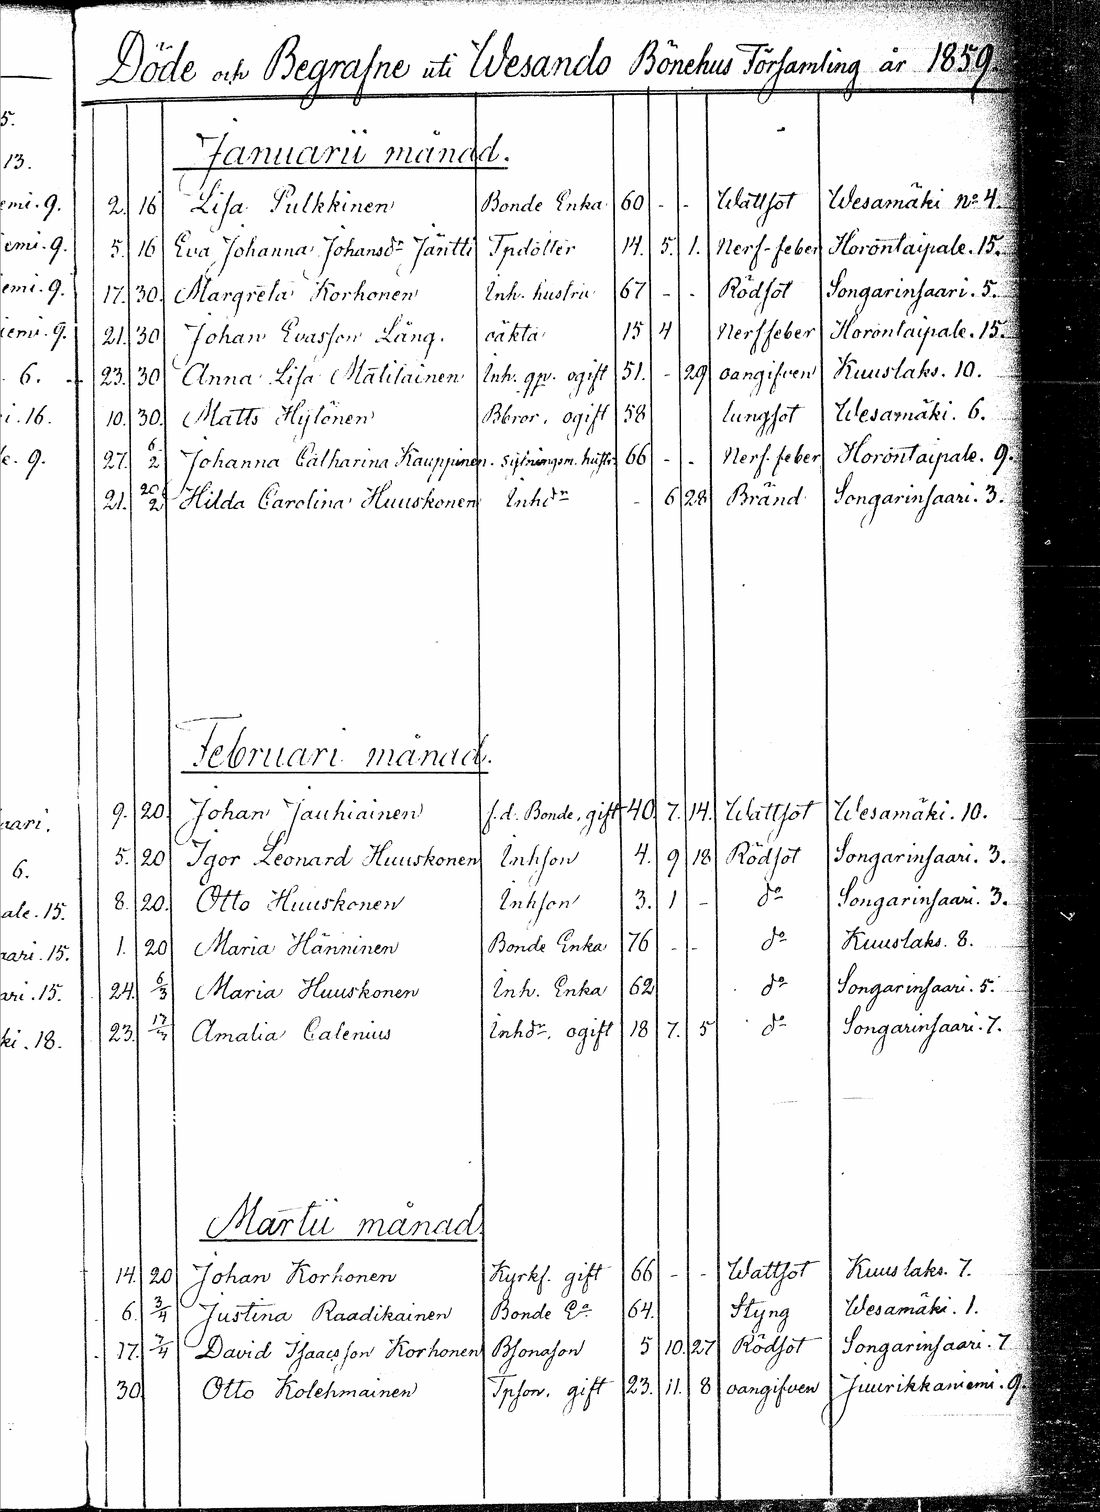 Döde och Begrafne uti Wesando Bönehus Församling år 1859.
Januarii månad.
2. 16 Lisa Pulkkinen Bonde Enka 60 - - Wattsot Wesamäki no 4.
5. 16 Eva Johanna Johansdr Jäntti Tpdotter 14. 5. 1. Nerf-feber Horontaipale. 15.
17. 30. Margreta Korhonen Inh. hustru 67 - - Rödsot Songarinsaari. 5.
21. 30 Johan Evasson Lång. oäkta 15 4 Nerffeber Horontaipale. 15.
23. 30 Anna Lisa Matilainen Inh. qv. ogift 51. - 29 oangifven Kuuslaks. 10.
10. 30. Matts Hytönen Bbror, ogift 58 lungsot Wesamäki. 6.
27. 6/2 Johanna Catharina Kauppinen. Sytningsm. hustr. 66 - - Nerf. feber Horontaipale. 9.
21. 20/2 Hilda Carolina Huuskonen Inhdr - 6 28 Bränd Songarinsaari. 3.
Februari månad.
9. 20. Johan Jauhiainen f.d. Bonde, gift 40. 7. 14. Wattsot Wesamäki. 10.
5. 20 Igor Leonard Huuskonen Inhson 4. 9 18 Rödsot Songarinsaari. 3.
8. 20. Otto Huuskonen Inhson 3. 1 - do Songarinsaari. 3.
1. 20 Maria Hänninen Bonde Enka 76 - - do Kuuslaks. 8.
24. 6/3 Maria Huuskonen Inh. Enka 62 do Songarinsaari. 5.
23. 17/3 Amalia Calenius Inhdr. ogift 18 7. 5 do Songarinsaari. 7.
Martii månad
14. 20 Johan Korhonen Kyrkf. gift 66 - - Wattsot Kuuslaks. 7.
6. 3/4 Justina Raadikainen Bonde Ea 64. Styng Wesamäki. 1.
17. 7/4 David Isaacsson Korhonen Bsonason 5 10. 27 Rödsot Songarinsaari. 7
30. Otto Kolehmainen Tpson, gift 23. 11. 8 oangifven Juurikkaniemi. 9.
5.
13.
emi. 9.
emi. 9.
emi. 9.
iemi. 9.
6.
i. 16.
le. 9.
aari.
6.
ale. 15.
aari. 15.
ari. 15.
ki. 18.